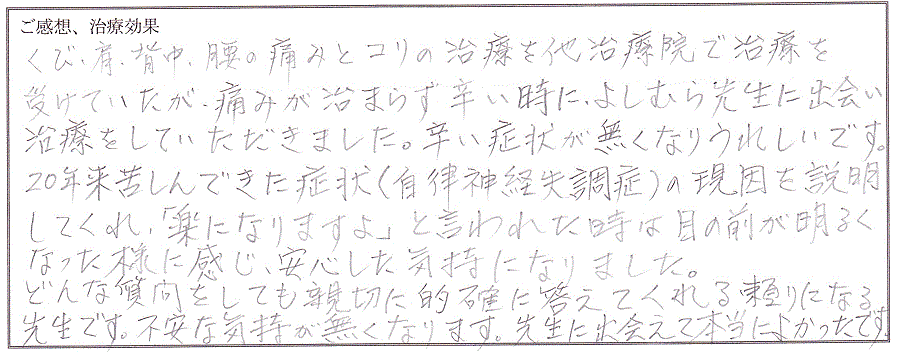 ご感想、治療効果
くび、肩、背中、腰の痛みとコリの治療を他治療院で治療を
受けていたが、痛みが治まらず辛い時に、よしむら先生に出会い
治療をしていただきました。辛い症状が無くなりうれしいです。
20年来苦しんできた症状(自律神経失調症)の現因を説明
してくれ、「楽になりますよ」と言われた時は目の前が明るく
なった様に感じ、安心した気持になりました。
どんな質問をしても親切に的確に答えてくれる頼りになる
先生です。不安な気持が無くなります。先生に出会えて本当によかったです。